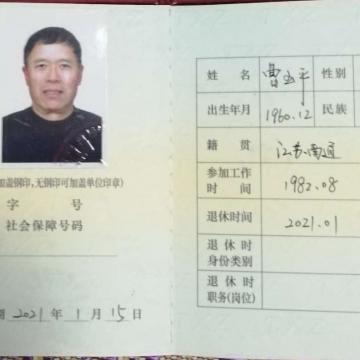 加盖钢印,无钢印可加盖单位印章)
字 号
社会保障号码
期 2021 年 1 月 15 日
姓 名 曹玉平 性别
出生年月 1960.12 民族
籍 贯 江苏南通
参加工作
时 间 1982.08
退休时间 2021.01
退 休 时
身份类别
退 休 时
职务(岗位)